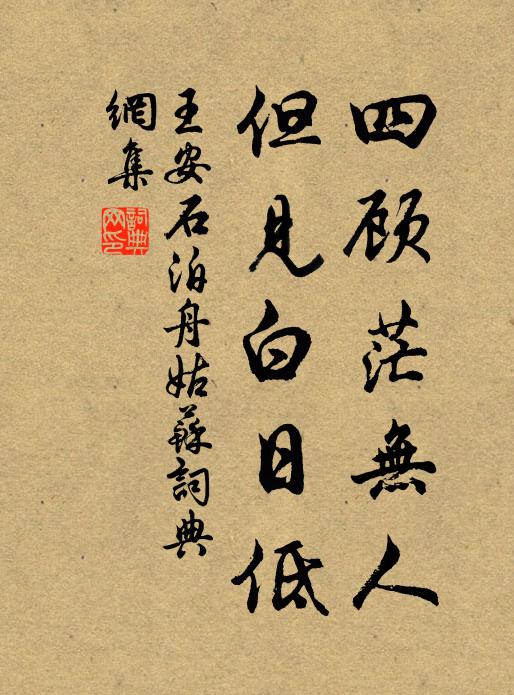 四顾茫無人
但見白日低
王安石泊舟姑蘇詞典
網集
詞典網印